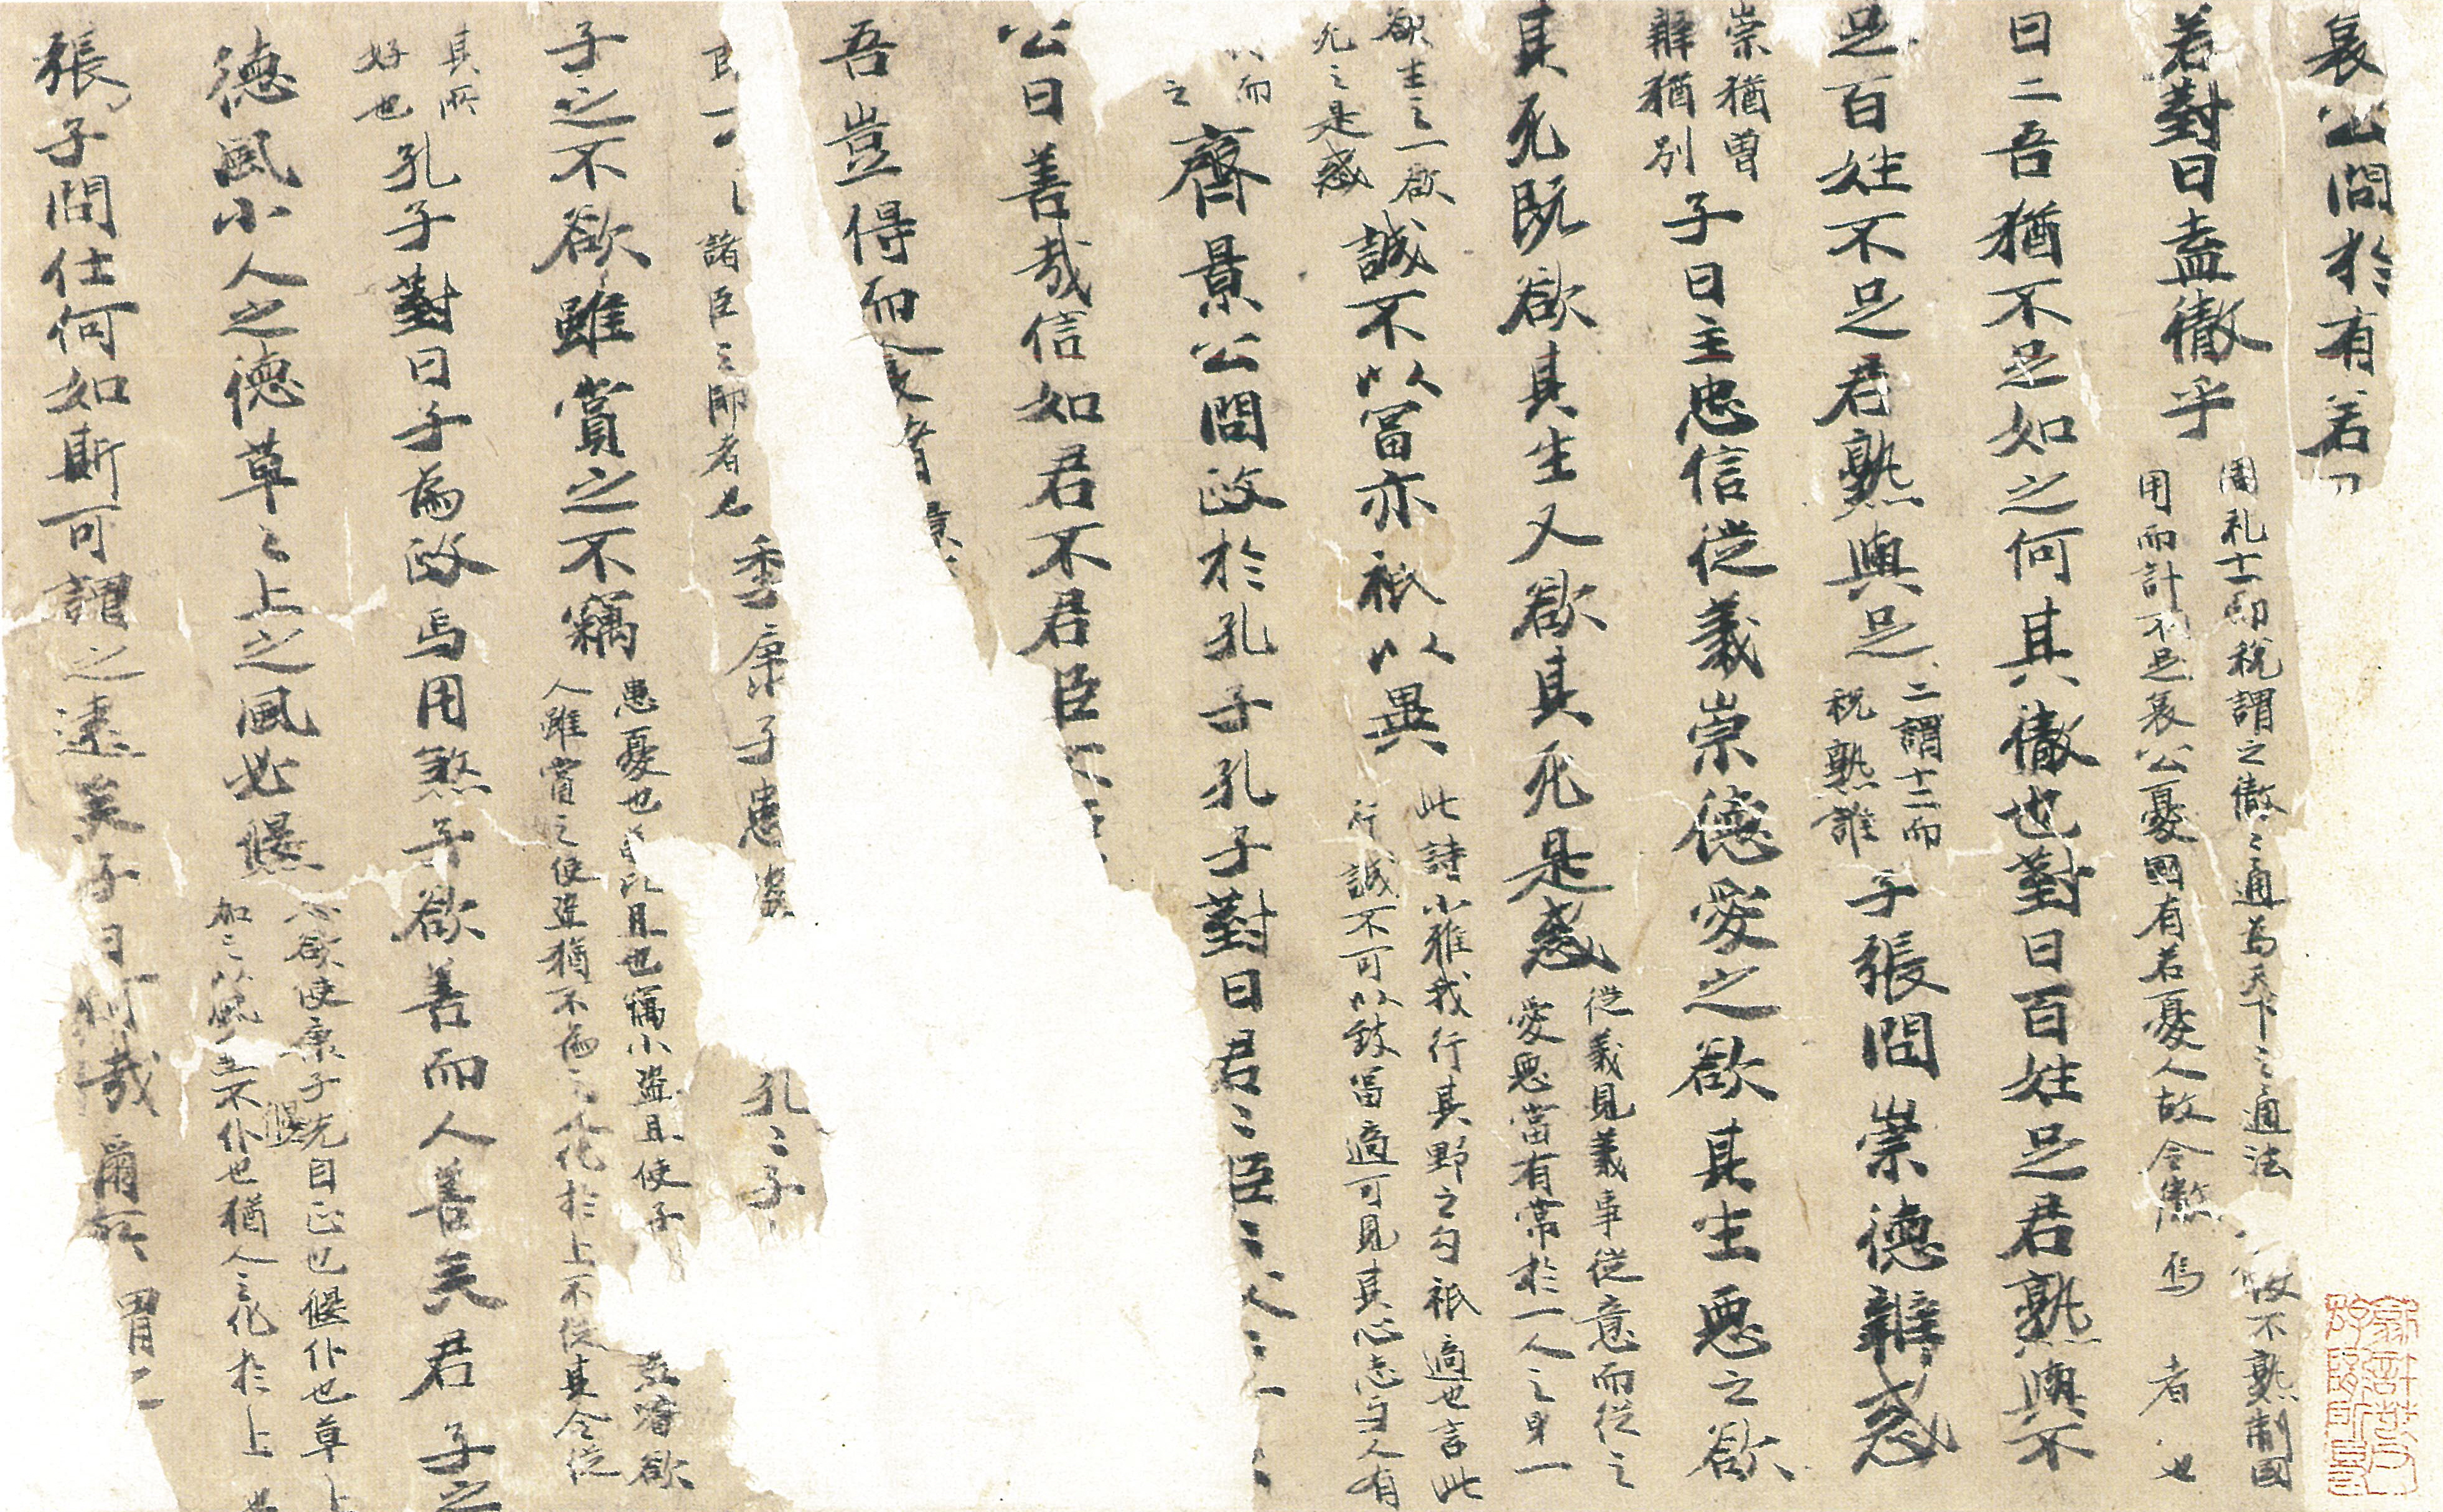 哀公問於有若
若對曰盍徹乎
周礼十一而税謂之徹〻通為天下〻通法
用而計不足哀公憂國有若憂人故令
不熟制國
者也
曰二吾猶不足如之何其徹也對曰百姓足君熟與不
足百姓不足君熟與足
二謂十二而
税熟誰
子張問崇德辯惑
崇猶曽
辯猶别
子曰主忠信從義崇德愛之欲其生惡之欲
其死既欲其生又欲其死是惑
從義見義事從意而從之
愛惡當有常於一人之身一
欲生之一欲
死之是惑
誠不以富亦祇以異
此詩小雅我行其野之勾祇適也言此
行誠不可以致富適可見其心志与人有
而
之
齊景公問政於孔子孔子對曰君〻臣〻父〻
公曰善哉信如君不君臣
吾豈得而食諸
諸臣之師者也
季康子患盗
孔〻子
子之不欲雖賞之不竊
患憂也
也竊小盗且使子
欲
人雖賞之使盗猶不為
化於上不從其令從
其所
好也
孔子對曰子為政焉用煞子欲善而人善矣君子之
德風小人之德草〻上之風必偃
欲使康子先自正也偃仆也草上
加之以風
不仆也猶人之化於上也
偃
張子問仕何如斯可謂之達矣子曰何哉爾所謂